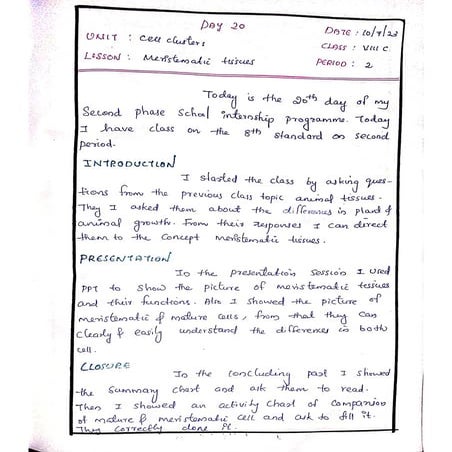 DAY 20
UNIT : Cell clusters
DATE : 10/7/23
CLASS : VIII C
LESSON : Meristematic tissues
PERIOD : 2
Today is the 20th day of my
Second phase Schol internship programme. Today
I have class on the 8th standard on second
period.
INTRODUCTION
I started the class by asking ques-
tions from the previous class topic animal tissues.
They I asked them about the differences in plant &
animal growth. From their responses I can direct
them to the concept meristematic tissues.
PRESENTATION
In the presentation session I used
PPT to show the picture of meristematic tissues
and their functions. Also I showed the picture of
meristematic & mature cells, from that they can
clearly & easily understand the differences in both
cell.
CLOSURE
In the concluding part I showed
the summary chart and ask them to read.
Then I showed an activity chart of companion
of mature & meristematic cell and ask to fill it.
They correctly done it.